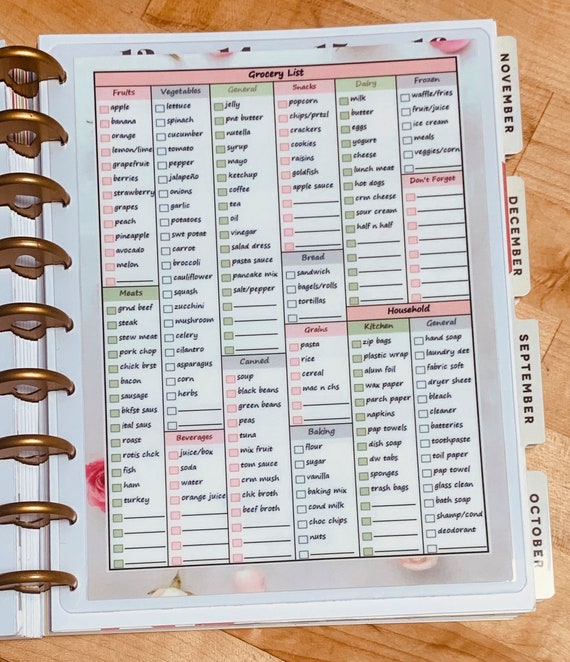 Grocery List
Fruits
apple
banana
orange
lemon/lime
grapefruit
berries
strawberry
grapes
peach
pineapple
avocado
melon
Meats
grnd beef
steak
stew meat
pork chop
chick brst
bacon
sausage
bkfst saus
ital saus
roast
rotis chck
fish
ham
turkey
Vegetables
lettuce
spinach
cucumber
tomato
pepper
jalapeño
onions
garlic
potatoes
swt potat
carrot
broccoli
cauliflower
squash
zucchini
mushroom
celery
cilantro
asparagus
corn
herbs
Beverages
juice/box
soda
water
orange juice
General
jelly
pne butter
nutella
syrup
mayo
ketchup
coffee
tea
oil
vinegar
salad dress
pasta sauce
pancake mix
salt/pepper
Canned
soup
black beans
green beans
peas
tuna
mix fruit
tom sauce
crm mush
chk broth
beef broth
Snacks
popcorn
chips/pretzl
crackers
cookies
raisins
goldfish
apple sauce
Bread
sandwich
bagels/rolls
tortillas
Grains
pasta
rice
cereal
mac n chs
Baking
flour
sugar
vanilla
baking mix
cond milk
choc chips
nuts
Dairy
milk
butter
eggs
yogurt
cheese
lunch meat
hot dogs
crm chees
sour cream
half n half
Frozen
waffle/fries
fruit/juice
ice cream
meals
veggies/corn
Don't Forget
Household
Kitchen
zip bags
plastic wrap
alum foil
wax paper
parch paper
napkins
pap towels
dish soap
dw tabs
sponges
trash bags
General
hand soap
laundry det
fabric soft
dryer sheet
bleach
cleaner
batteries
toothpaste
toil paper
pap towel
glass clean
bath soap
shamp/cond
deodorant
NOVEMBER
DECEMBER
SEPTEMBER
OCTOBER